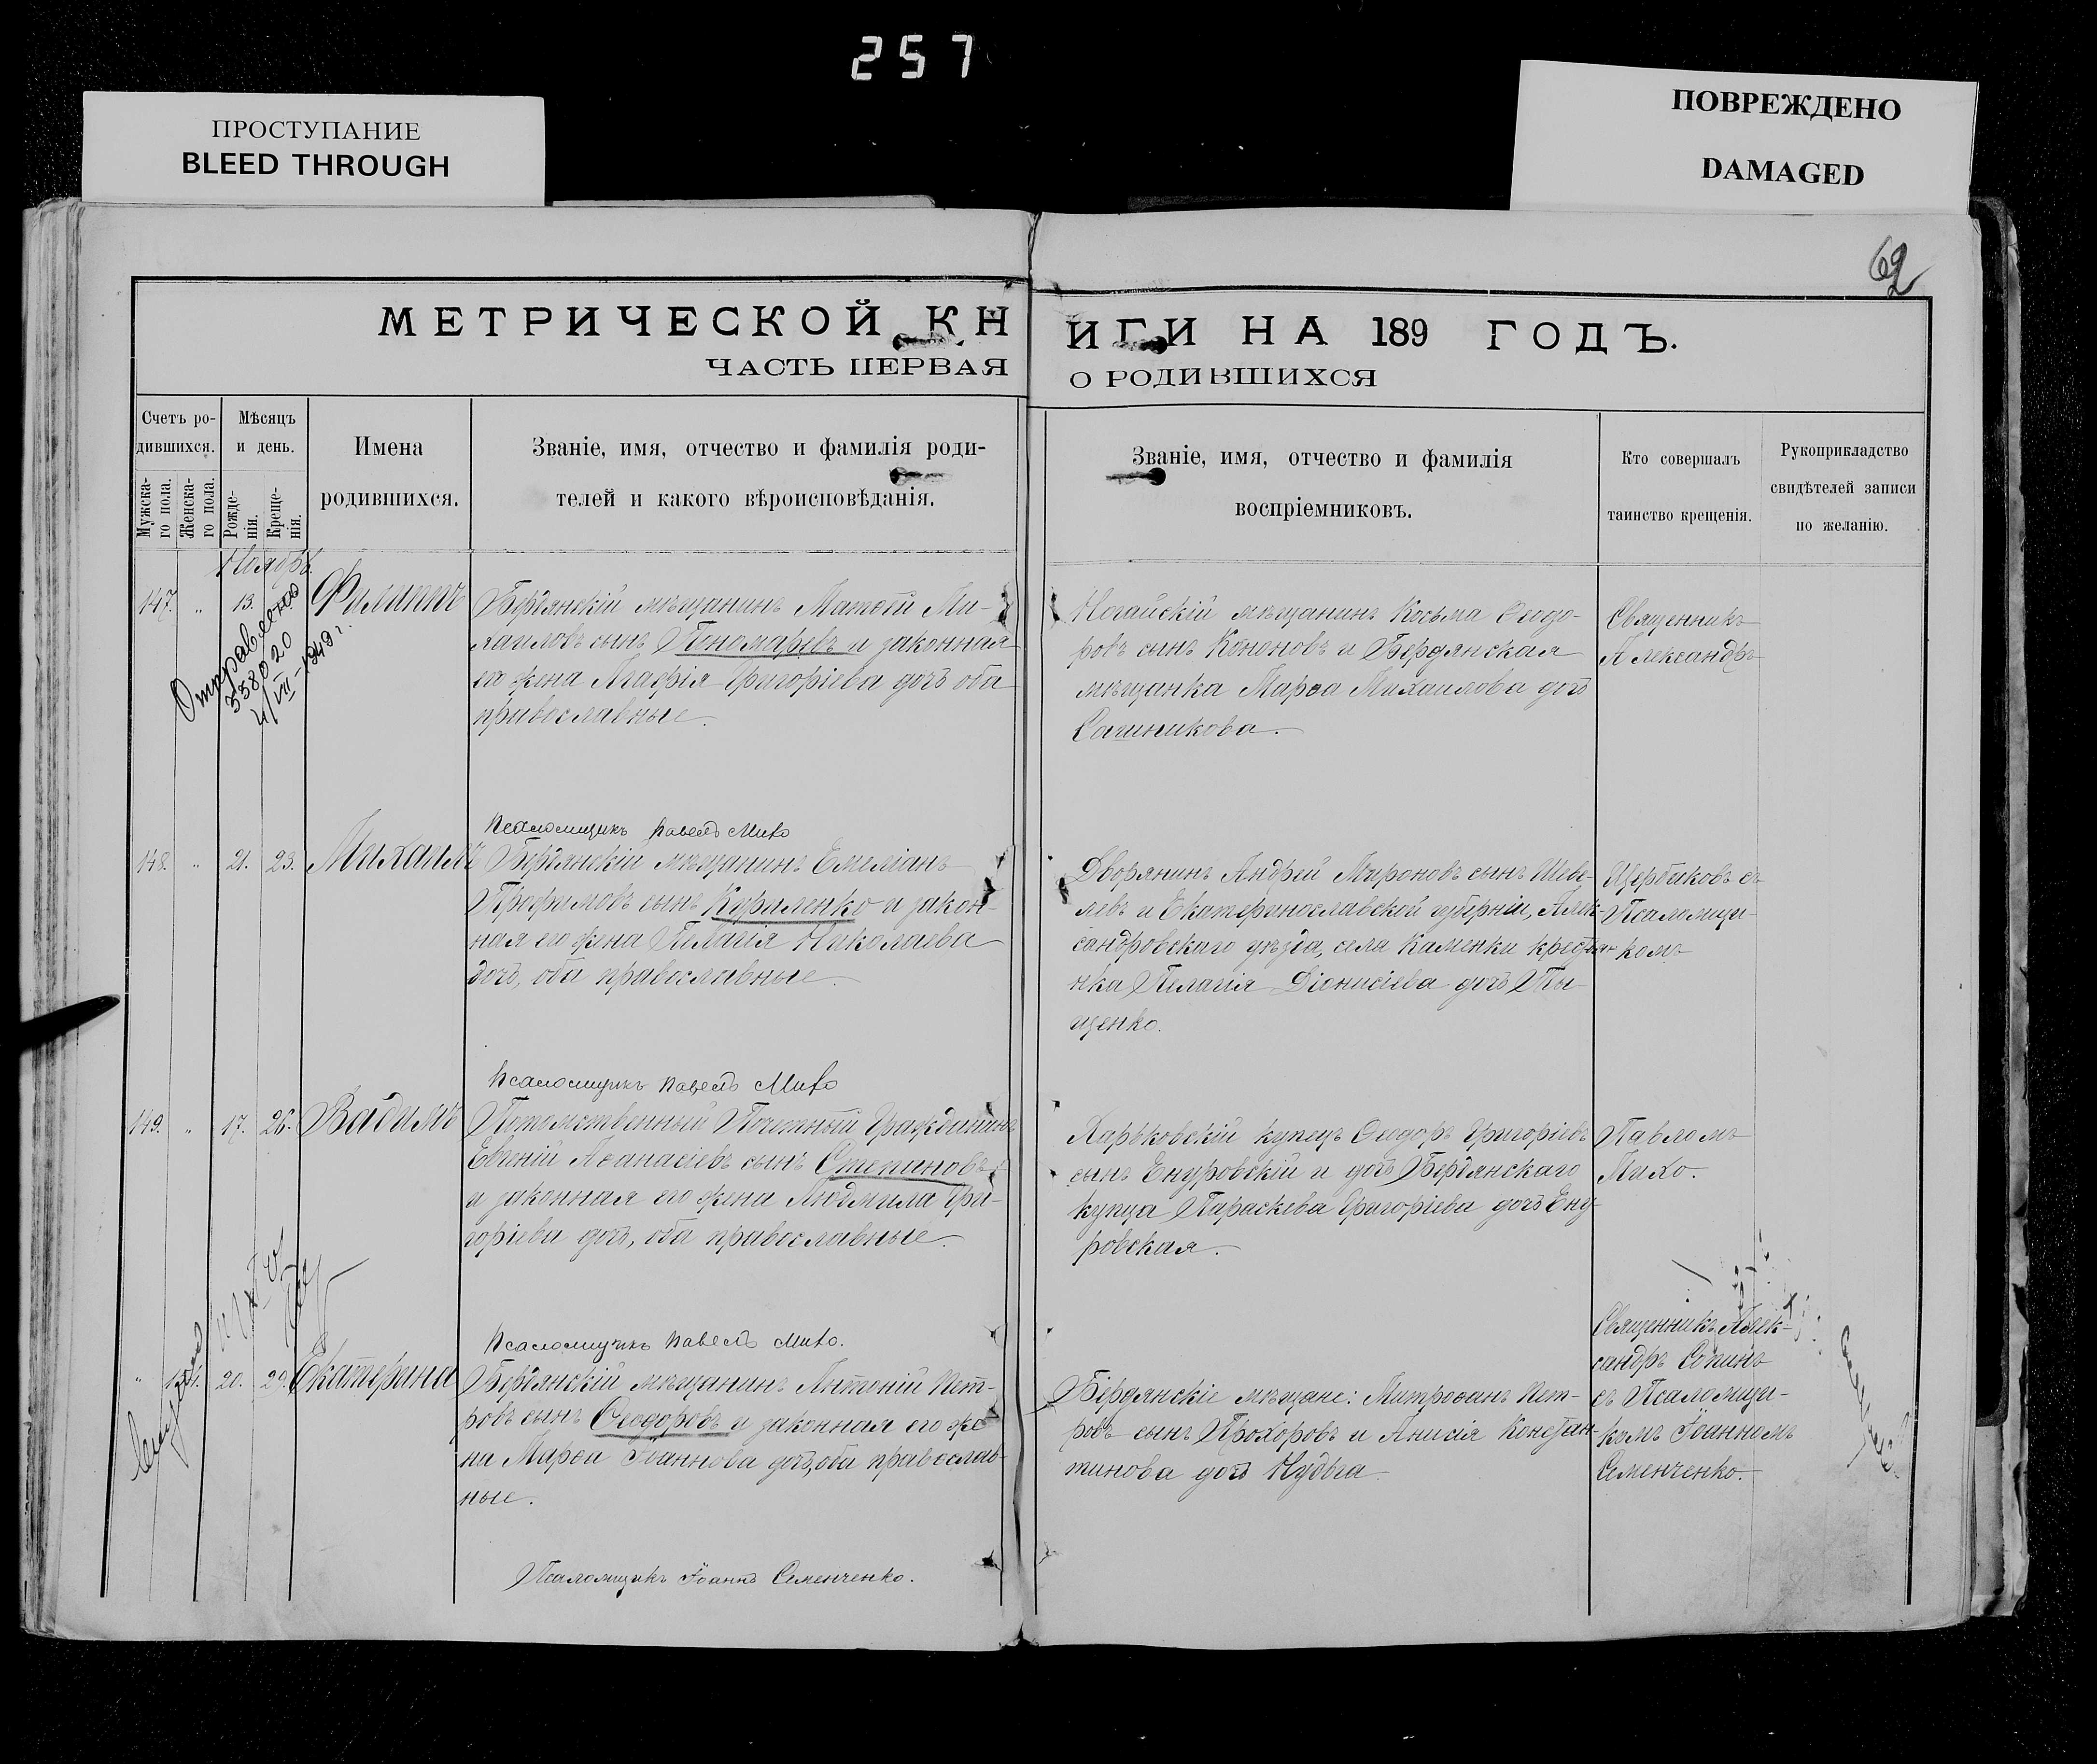 257
ПРОСТУПАНИЕ
BLEED THROUGH
ПОВРЕЖДЕНО
DAMAGED
62
МЕТРИЧЕСКОЙ КНИГИ НА 189 ГОДЪ.
ЧАСТЬ ПЕРВАЯ О РОДИВШИХСЯ
Счетъ ро-
дившихся.
Мужска-
го пола.
Женска-
го пола.
Мѣсяцъ
и день.
Рожде-
нія.
Креще-
нія.
Имена
родившихся.
Званіе, имя, отчество и фамилія роди-
телей и какого вѣроисповѣданія.
Званіе, имя, отчество и фамилія
воспріемниковъ.
Кто совершалъ
таинство крещенія.
Рукоприкладство
свидѣтелей записи
по желанію.
Ноябрь.
147. " 13. Филиппъ
Отправлено
338020
4/VII-1949 г.
Бердянскій мѣщанинъ Матѳій Ми-
хаиловъ сынъ Пономаревъ и законная
его жена Агафія Григоріева дочь оба
православные.
Ногайскій мѣщанинъ Косьма Ѳеодо-
ровъ сынъ Кононовъ и Бердянская
мѣщанка Марѳа Михаилова дочь
Сапиникова.
Священникъ
Александръ
Псаломщикъ Павелъ Михо
148. " 21. 23. Михаилъ
Бердянскій мѣщанинъ Емеліанъ
Трофимовъ сынъ Куриленко и закон-
ная его жена Пелагія Николаева
дочь, оба православные.
Дворянинъ Андрей Мироновъ сынъ Шеве-
левъ и Екатеринославской губерніи, Алек-
сандровскаго уѣзда, села Каменки крестьян-
нка Пелагія Діонисіева дочь Ты-
щенко.
Щербаковъ съ
Псаломщи-
комъ
Псаломщикъ Павелъ Михо
149. " 17. 26. Вадимъ
Потомственный Почетный Гражданинъ
Евгеній Аѳанасіевъ сынъ Степановъ
и законная его жена Людмила Гри-
горіева дочь, оба православные.
Харьковскій купецъ Ѳеодоръ Григоріевъ
сынъ Енуровскій и дочь Бердянскаго
купца Параскева Григоріева дочь Ену-
ровская.
Павломъ
Михо.
Псаломщикъ Павелъ Михо.
" 20. 29. Екатерина
Бердянскій мѣщанинъ Антоній Пет-
ровъ сынъ Ѳеодоровъ и законная его же-
на Марѳа Іоаннова дочь, оба православ-
ные.
Бердянскіе мѣщане: Митрофанъ Пет-
ровъ сынъ Прохоровъ и Анисія Констан-
тинова дочь Нудьга
Священникъ Алек-
сандръ Сопинъ
съ Псаломщи-
комъ Іоанномъ
Семенченко.
Псаломщикъ Іоаннъ Семенченко.